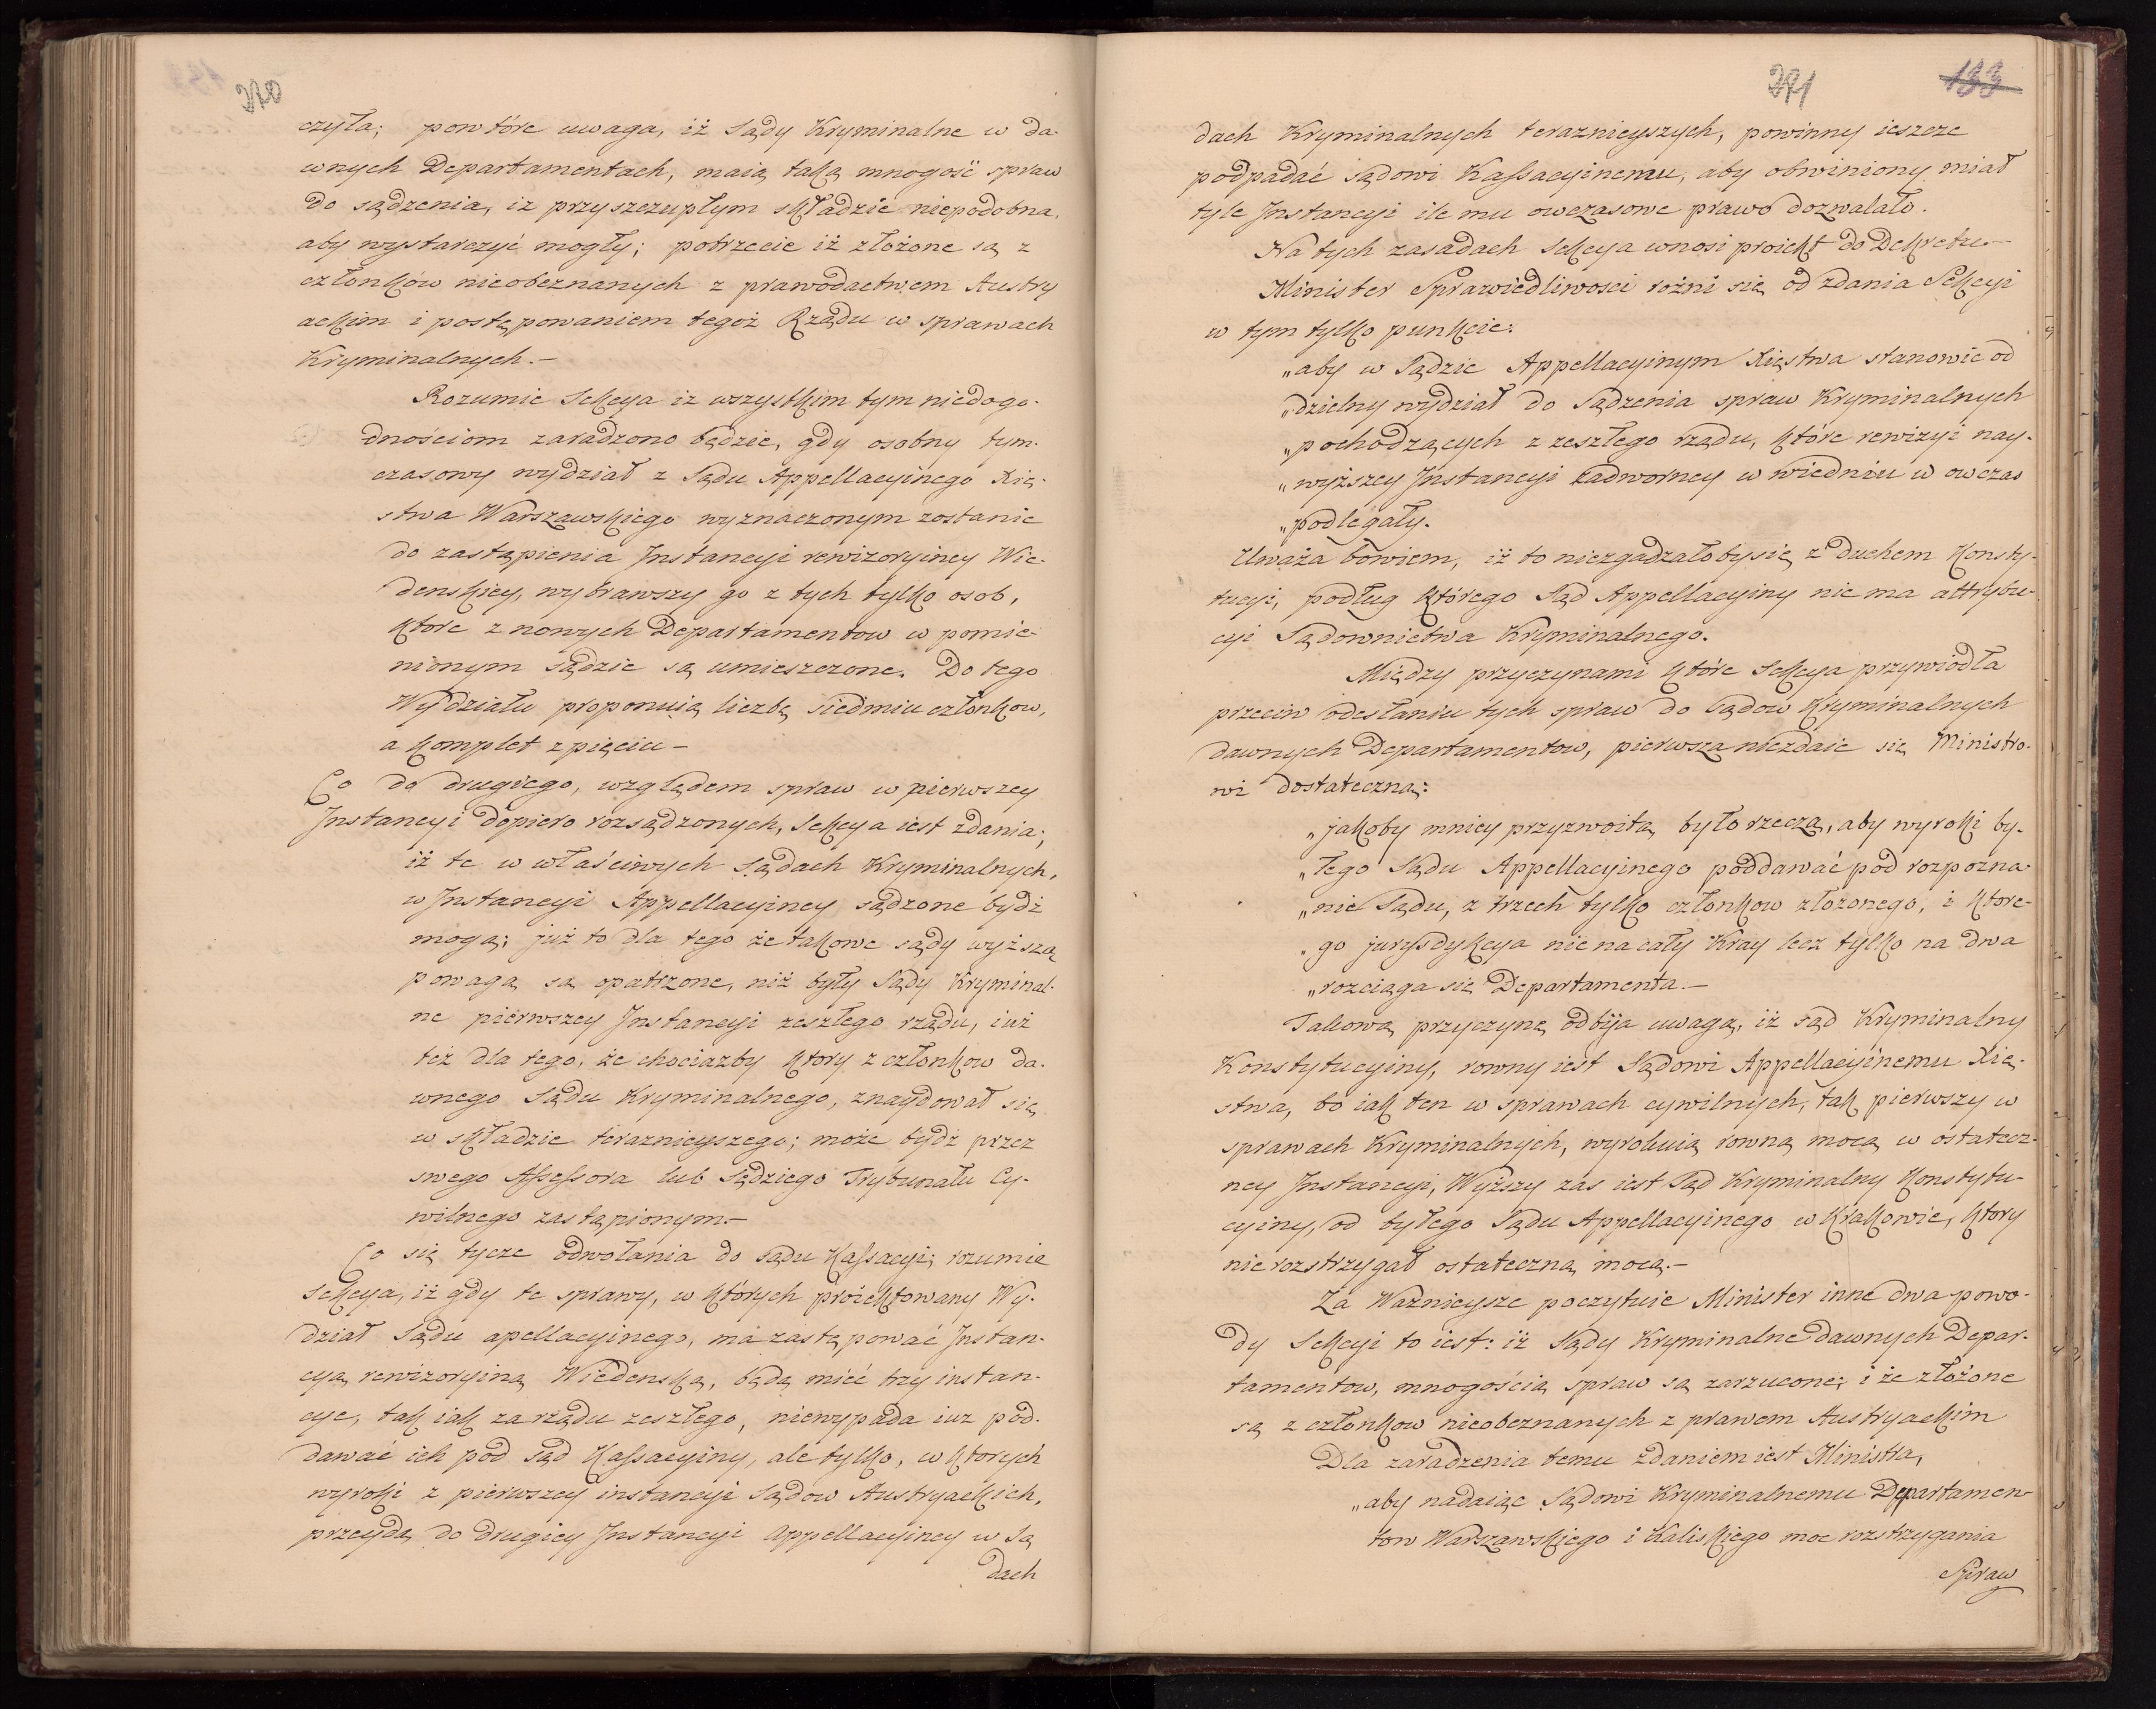 270
czyła; powtóre uwaga, iż Sądy Kryminalne w da-
wnych Departamentach, maią taką mnogość spraw
do sądzenia, iz przyszczupłym składzie niepodobna,
aby wystarczyć mogły; potrzecie iż złożone są z
członków nieobeznanych z prawodactwem Austry
ackim i postępowaniem tegoż Rządu w sprawach
Kryminalnych.—
Rozumie Sekcya iz wszystkim tym niedogo-
dnościom zaradzono będzie, gdy osobny tym-
czasowy wydział z Sądu Appellacyinego Xię-
stwa Warszawskiego wyznaczonym zostanie
do zastąpienia Instancyi rewizoryiney Wie-
denskiey, wybrawszy go z tych tylko osob,
ktore z nowych Departamentow w pomie-
nionym sądzie są umieszczone. Do tego
Wydziału proponuią liczbę siedmiu członkow,
a komplet z pięciu —
Co do drugiego, względem spraw w pierwszey
Instancyi dopiero rozsądzonych, Sekcya iest zdania;
iż te w właściwych Sądach Kryminalnych,
w Instancyi Appellacyiney sądzone bydź
mogą; już to dla tego że takowe sądy wyższą
powagą są opatrzone, niż były Sądy Kryminal-
ne pierwszey Instancyi zeszłego rządu, iuż
też dla tego, że chociazby ktory z członkow da-
wnego Sądu Kryminalnego, znaydował się
w składzie teraznieyszego; może bydź przez
swego Assessora lub Sędziego Trybunału Cy-
wilnego zastąpionym.—
Co się tycze odwołania do Sądu Kassacyi; rozumie
Sekcya, iż gdy te sprawy, w których proiektowany Wy-
dział Sądu apellacyinego, ma zastępować Instan-
cyą rewizoryiną Wiedenską, będą mieć trzy instan-
cye, tak iak za rządu zeszłego, niewypada iuz pod-
dawać ich pod Sąd Kassacyiny, ale tylko, w ktorych
wyroki z pierwszey instancyi Sądow Austryackich,
przeydą do drugiey Instancyi Appellacyiney w Są
dach
271 133
dach Kryminalnych teraznieyszych, powinny ieszcze
podpadać sądowi Kassacyinemu, aby obwiniony miał
tyle Instancyi ile mu owczasowe prawo dozwalało.
Na tych zasadach Sekcya wnosi proiekt do Dekretu.—
Minister Sprawiedliwosci rożni się od zdania Sekcyi
w tym tylko punkcie:
„aby w Sądzie Appellacyinym Xięstwa stanowić od
„dzielny wydział do Sądzenia spraw Kryminalnych
„pochodzących z zeszłego rządu, które rewizyi nay-
„wyższey Instancyi nadworney w wiedniu w owczas
„podlegały.
Uważa bowiem, iż to niezgadzałoby się z duchem Konsty-
tucyi, podług którego Sąd Appellacyiny nie ma attrybu-
cyi Sądownictwa Kryminalnego.
Między przyczynami które Sekcya przywiodła
przeciw odesłaniu tych spraw do Sądow Kryminalnych
dawnych Departamentow, pierwsza niezdaie się Ministro-
wi dostateczną:
„jakoby mniey przyzwoitą było rzeczą, aby wyroki by-
„łego Sądu Appellacyinego poddawać pod rozpozna-
„nie Sądu, z trzech tylko członkow złożonego, i ktore-
„go jurysdykcya nie na cały Kray lecz tylko na dwa
„rozciąga się Departamenta.—
Takową przyczynę odbija uwagą, iż sąd Kryminalny
Konstytucyiny, rowny iest Sądowi Appellacyinemu Xię-
stwa, bo iak ten w sprawach cywilnych, tak pierwszy w
sprawach Kryminalnych, wyrokuią rowną mocą w ostatecz-
ney Instancyi, Wyższy zas iest Sąd Kryminalny Konstytu-
cyiny, od byłego Sądu Appellacyinego w Krakowie, ktory
nie rozstrzygał ostateczną mocą.—
Za Waznieysze poczytuie Minister inne dwa powo-
dy Sekcyi to iest: iż Sądy Kryminalne dawnych Depar-
tamentow, mnogością spraw są zarzucone; i że złożone
są z członkow nieobeznanych z prawem Austryackim
Dla zaradzenia temu zdaniem iest Ministra,
„aby nadaiąc Sądowi Kryminalnemu Departamen-
tow Warszawskiego i Kaliskiego moc rozstrzygania
Spraw